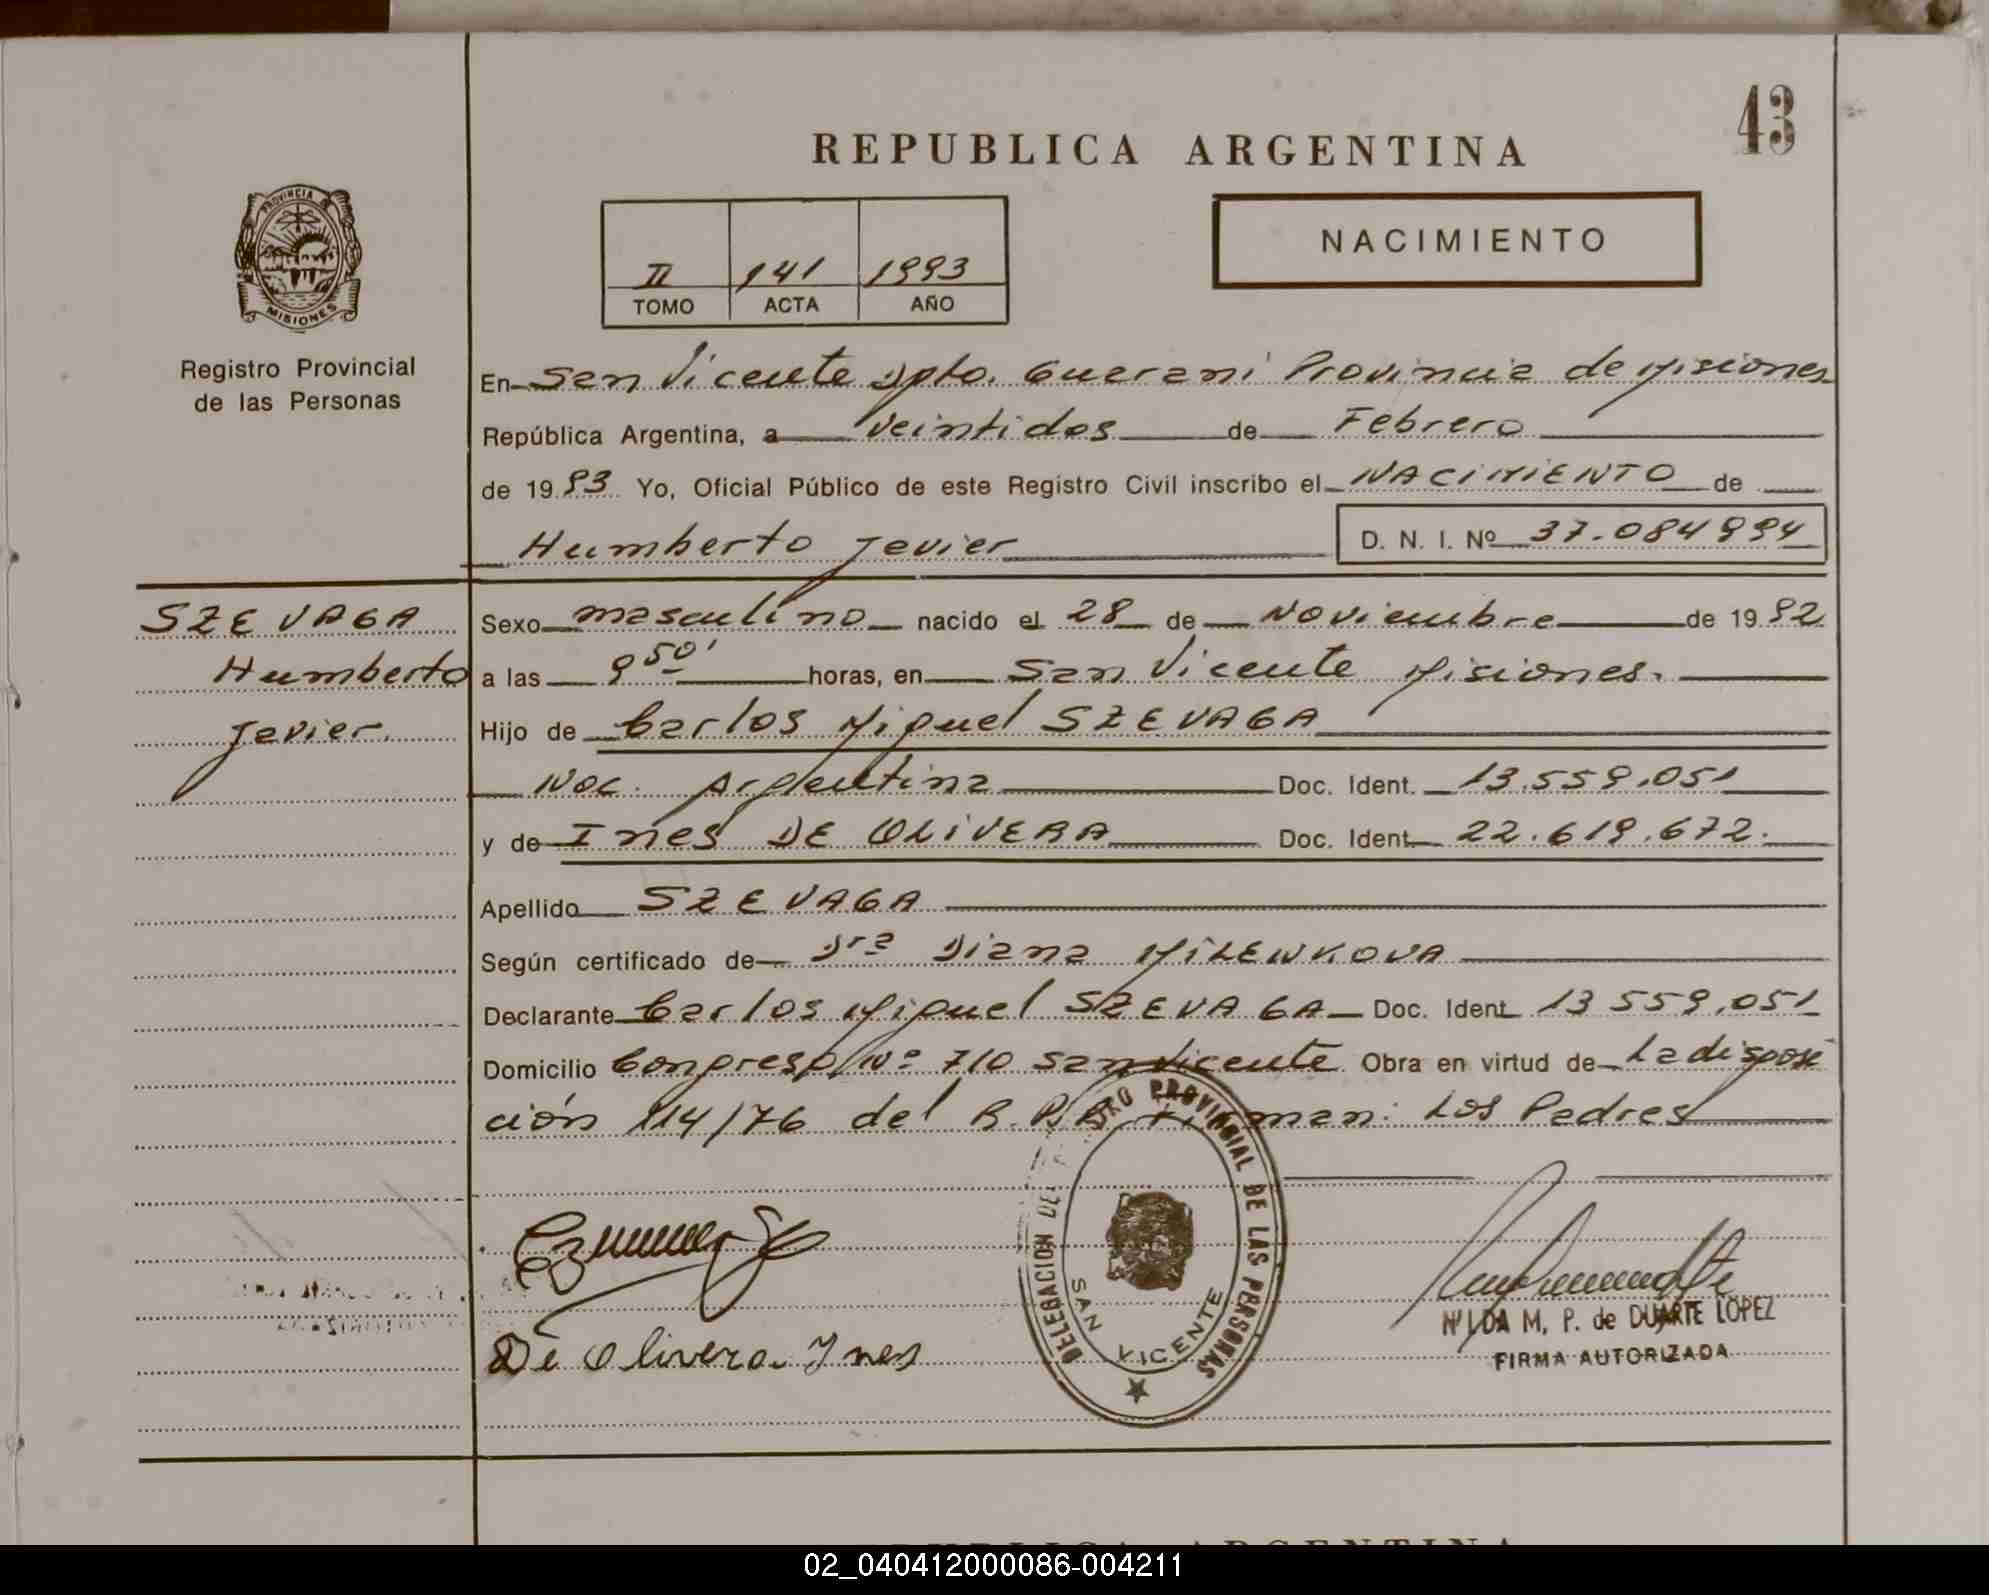 43
REPUBLICA ARGENTINA
PROVINCIA
MISIONES
NACIMIENTO
II 141 1993
TOMO ACTA AÑO
Registro Provincial
de las Personas
En San Vicente Dpto. Guarani Provincia de Misiones
República Argentina, a veintidos de Febrero
de 1993 Yo, Oficial Público de este Registro Civil inscribo el NACIMIENTO de
Humberto Javier D. N. I. Nº 37.084994
SZEVAGA
Humberto
Javier.
Sexo masculino nacido el 28 de Noviembre de 1992
a las 9 50' horas, en San Vicente Misiones.
Hijo de Carlos Miguel SZEVAGA
Nac. Argentina Doc. Ident. 13.559.051
y de Ines DE OLIVERA Doc. Ident 22.619.672.
Apellido SZEVAGA
Según certificado de Dra Diana MILENKOVA
Declarante Carlos Miguel SZEVAGA Doc. Ident 13 559.051
Domicilio Congreso Nº 710 San Vicente Obra en virtud de La disposi
ción 114/76 del R.P.P. Firman: Los Padres
DELEGACION DEL REGISTRO PROVINCIAL DE LAS PERSONAS
SAN VICENTE
De Olivera Ines
NILDA M. P. de DUARTE LOPEZ
FIRMA AUTORIZADA
REPUBLICA ARGENTINA
02_040412000086-004211